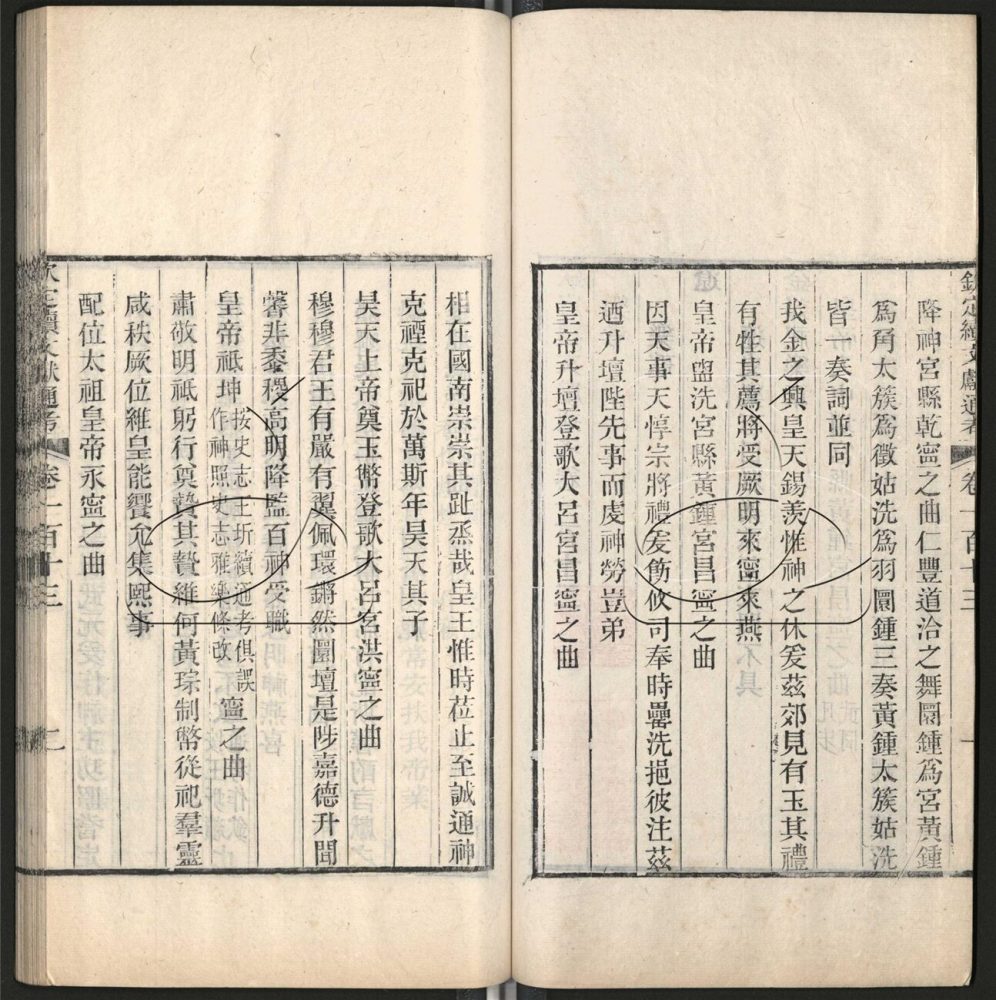 欽定續文獻通考 卷一百十三
降神宮縣乾寧之曲仁豐道洽之舞圜鍾爲宮黃鍾
爲角太簇爲徵姑洗爲羽圜鍾三奏黃鍾太簇姑洗
皆一奏詞並同
我金之興皇天錫羨惟神之休爰茲郊見有玉其禮
有牲其薦將受厥明來寧來燕
皇帝盥洗宮縣黃鍾宮昌寧之曲
因天事天惇宗將禮爰飭攸司奉時罍洗挹彼注茲
迺升壇陛先事而虔神勞豈弟
皇帝升壇登歌大呂宮昌寧之曲
相在國南崇崇其趾烝哉皇王惟時莅止至誠通神
克禋克祀於萬斯年昊天其子
昊天上帝奠玉幣登歌大呂宮洪寧之曲
穆穆君王有嚴有翼佩環鏘然圜壇是陟嘉德升聞
馨非黍稷高明降監百神受職
皇帝祗坤按史志王圻續通考俱誤作神照史志雅樂條改寧之曲
肅敬明祗躬行奠贄其贄維何黃琮制幣從祀羣靈
咸秩厥位維皇能饗允集熙事
配位太祖皇帝永寧之曲
欽定續文獻通考 卷一百十三 二